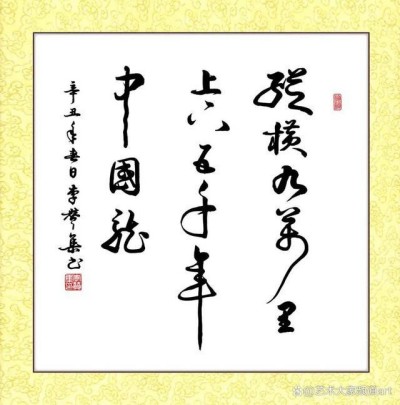 縱橫九萬里
上下五千年
中國龍
辛丑年春日李集书
@艺术大家频道art